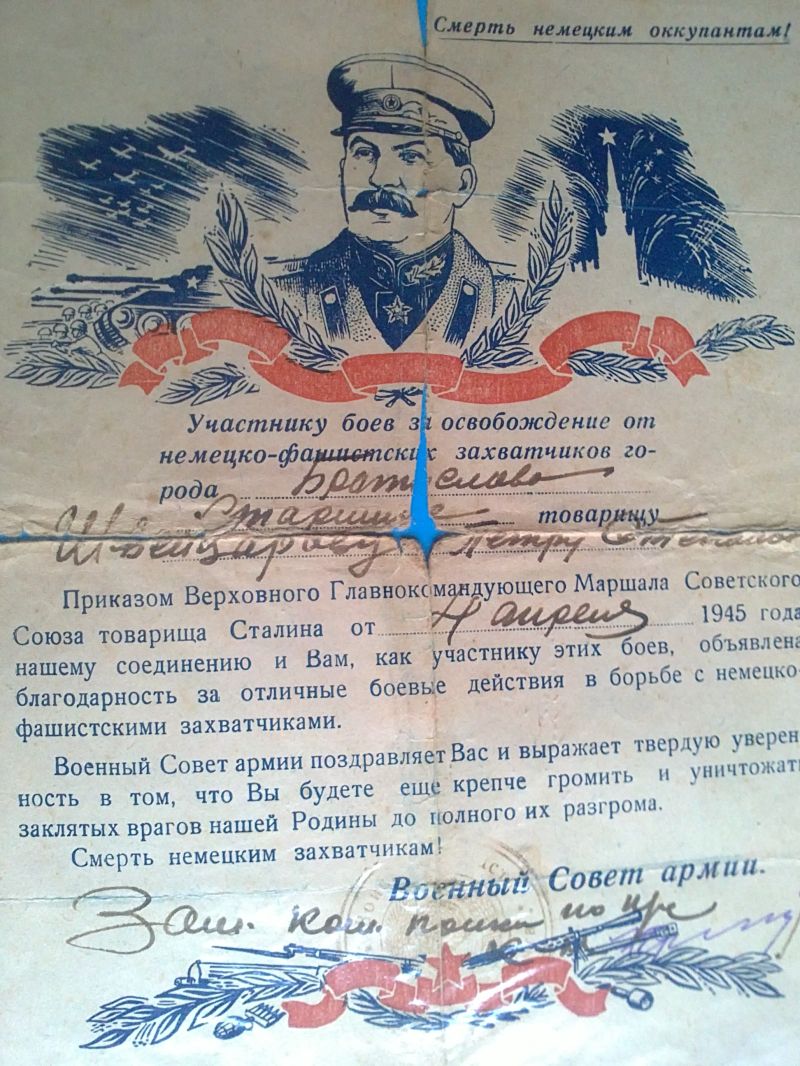 Смерть немецким оккупантам!
Участнику боев за освобождение от
немецко-фашистских захватчиков го-
рода Братислава
Старшине товарищу
Швейцарову Петру Степанов
Приказом Верховного Главнокомандующего Маршала Советского
Союза товарища Сталина от 4 апреля 1945 года
нашему соединению и Вам, как участнику этих боев, объявлена
благодарность за отличные боевые действия в борьбе с немецко-
фашистскими захватчиками.
Военный Совет армии поздравляет Вас и выражает твердую уверен
ность в том, что Вы будете еще крепче громить и уничтожат
заклятых врагов нашей Родины до полного их разгрома.
Смерть немецким захватчикам!
Военный Совет армии.
Зам. ком. полка по